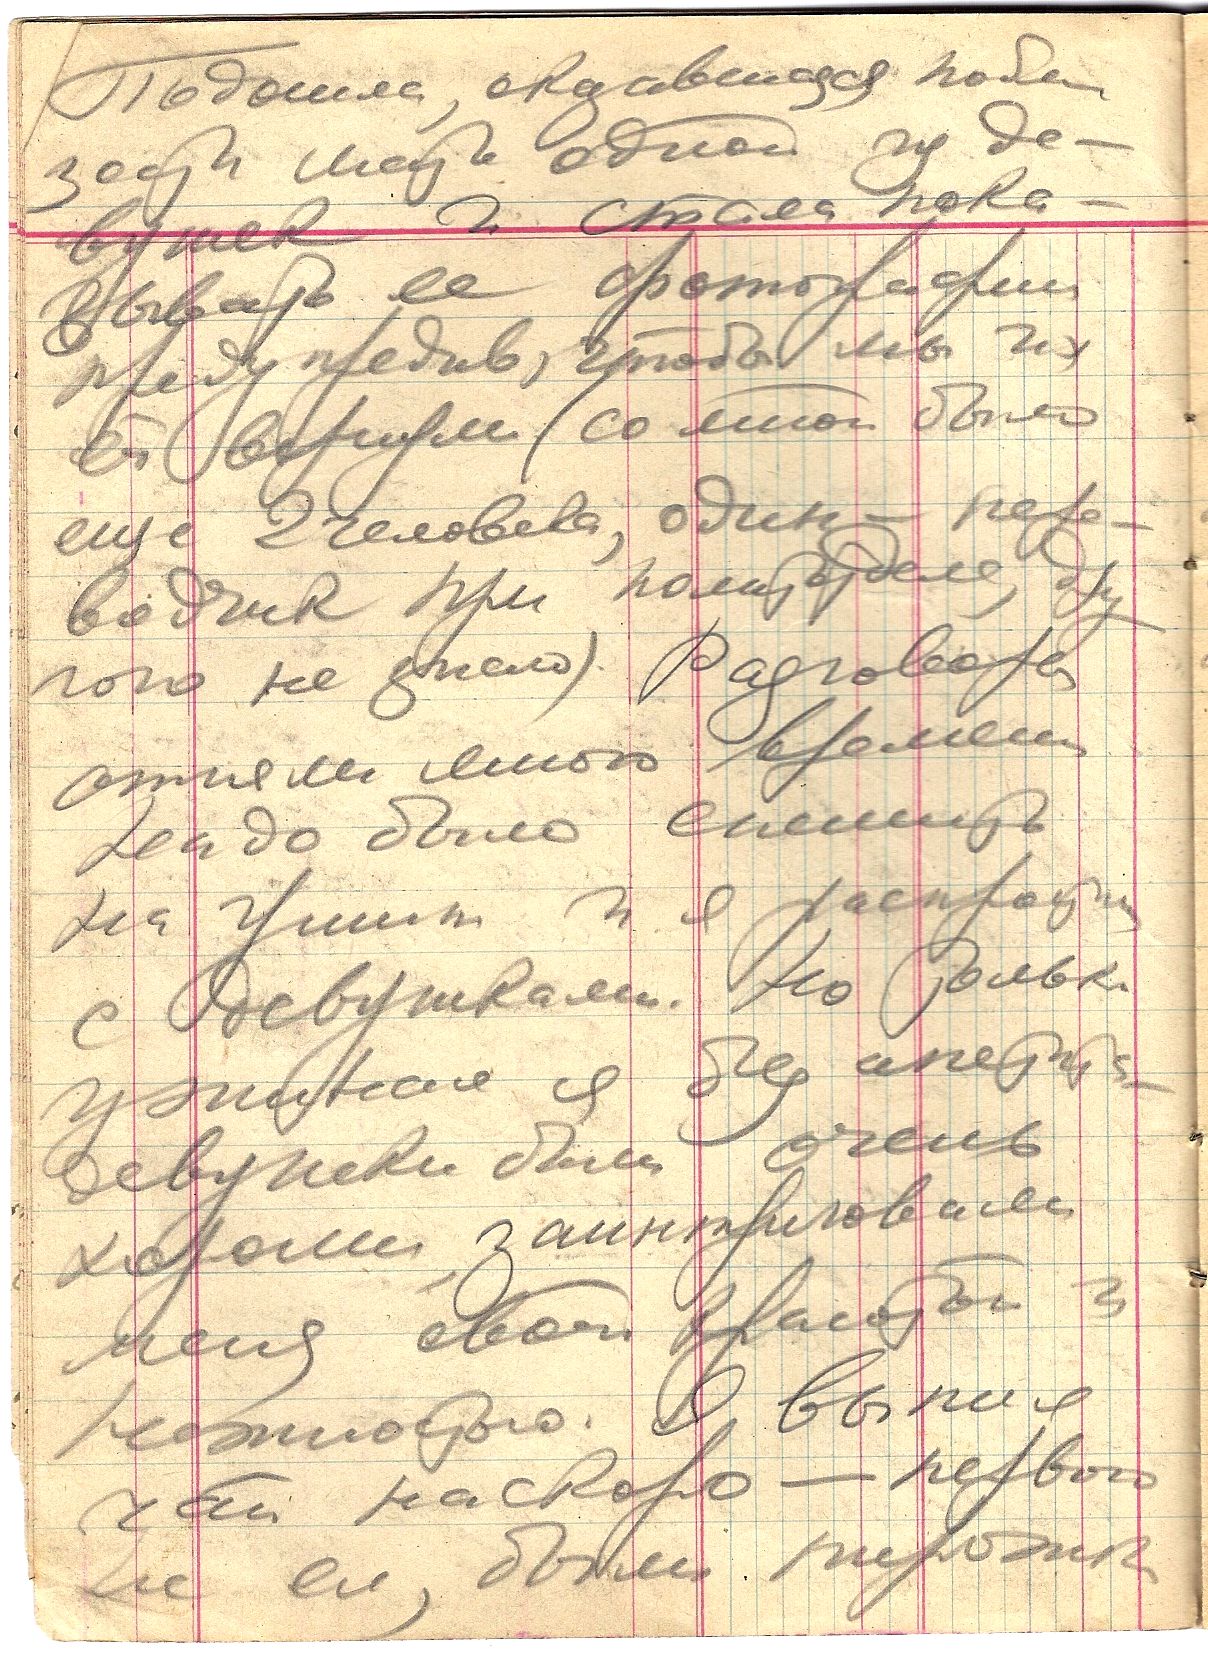 Подошла, оказавшаяся побли
зости мать одной из де-
вушек и стала пока-
зывать ее фотографии
предупредив, чтобы мы их
ей вернули (со мной было
еще 2 человека, один – пере-
водчик при политотделе, дру
гого не знаю). Разговоры
отняли много времени
надо было спешить
на ужин и я распростил
с девушками. Но только
ужинал я без аппетита –
девушки были очень
хороши, заинтриговали
меня своей красотой и
нежностью. Я выпил
чай наскоро – первого
не ел, были пирожки